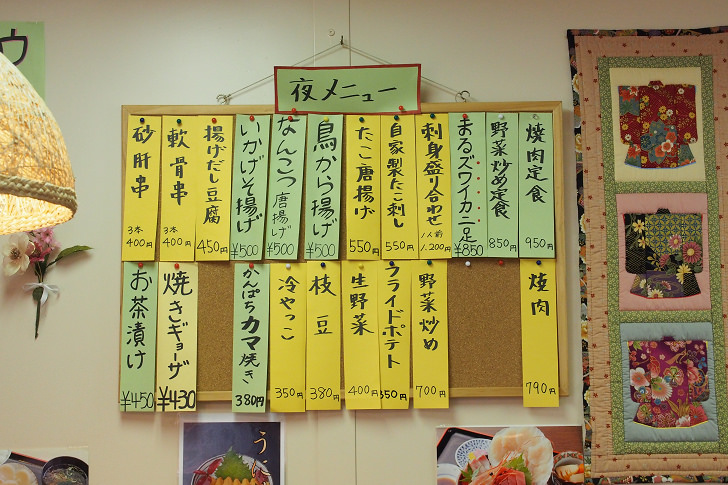 夜メニュー
焼肉定食
950円
野菜炒め定食
850円
まるズワイカニ足
¥850
刺身盛り合わせ
1人前
1.200円
自家製たこ刺し
550円
たこ唐揚げ
550円
鳥から揚げ
¥500
なんこつ唐揚げ
¥500
いかげそ揚げ
¥500
揚げだし豆腐
450円
軟骨串
3本
400円
砂肝串
3本
400円
焼肉
790円
野菜炒め
700円
フライドポテト
350円
生野菜
400円
枝豆
380円
冷やっこ
350円
かんぱちカマ焼き
380円
焼きギョーザ
¥430
お茶漬け
¥450
ウ
うに